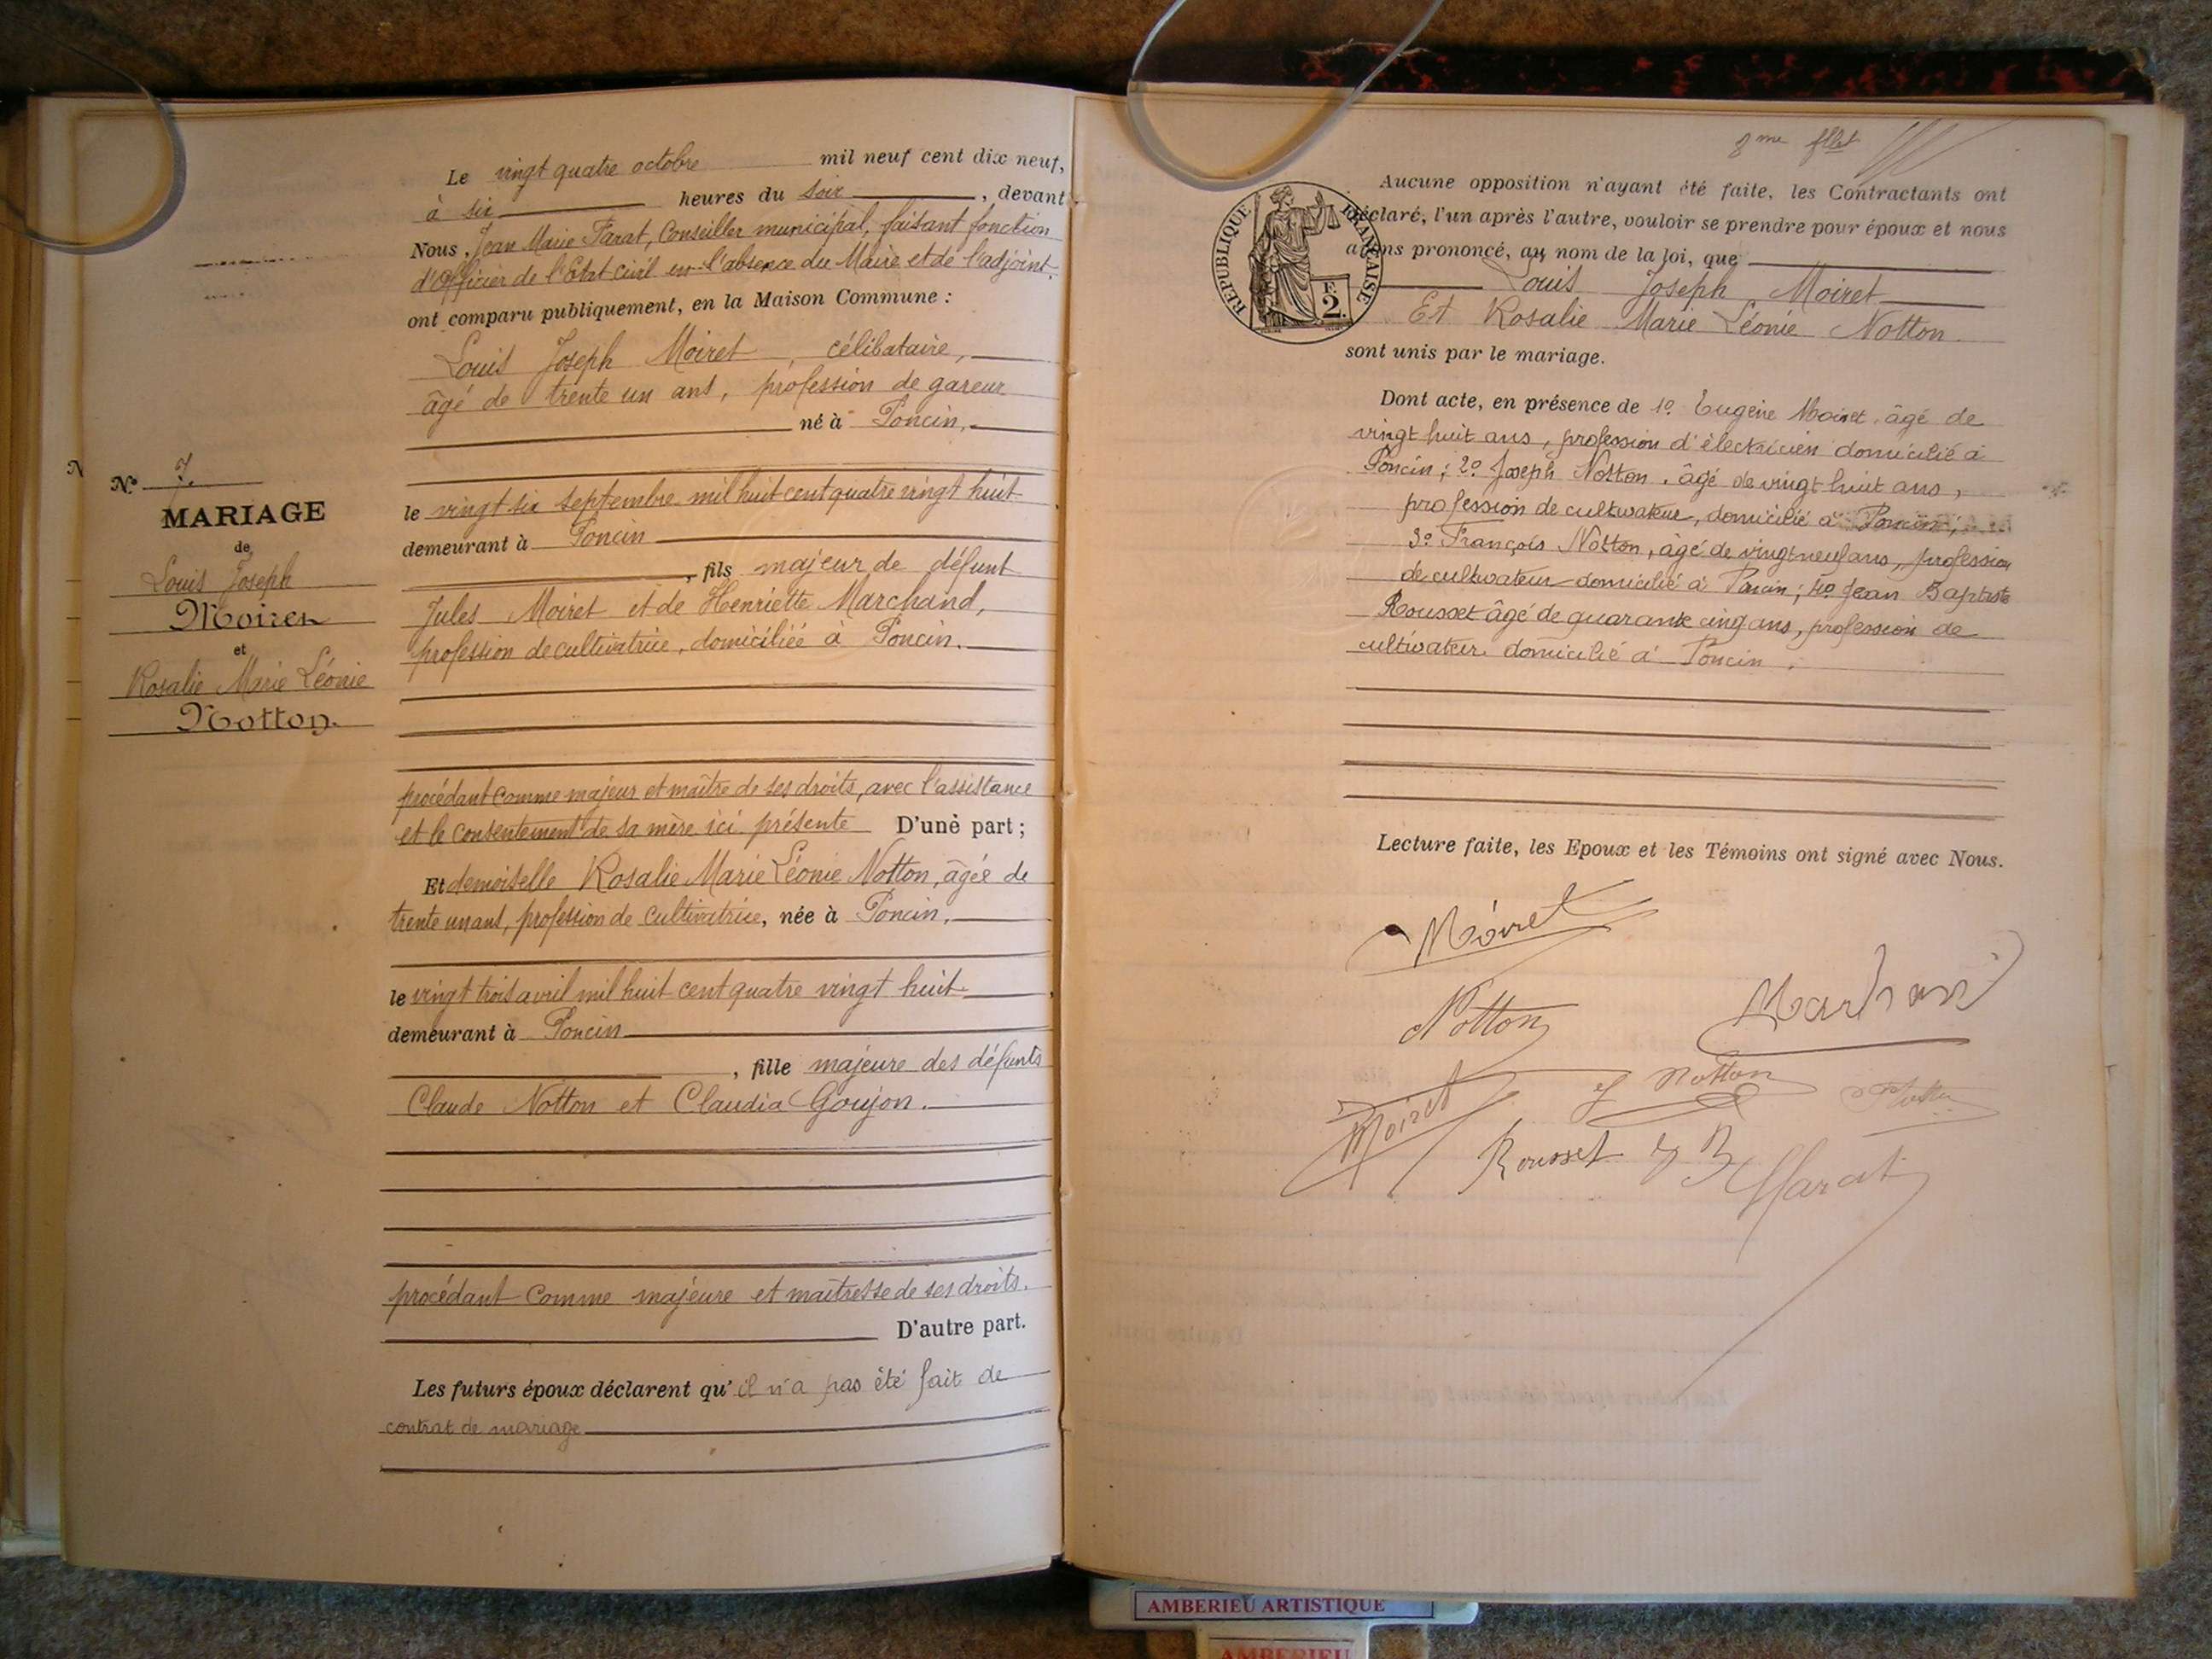 Le vingt quatre octobre mil neuf cent dix neuf,
à six heures du soir, devant
Nous, Jean Marie Farat, Conseiller municipal, faisant fonction
d'Officier de l'Etat civil en l'absence du Maire et de l'adjoint.
ont comparu publiquement, en la Maison Commune :
Louis Joseph Moiret, célibataire,
âgé de trente un ans, profession de gareur
né à Poncin,
le vingt six septembre mil huit cent quatre vingt huit
demeurant à Poncin
, fils majeur de défunt
Jules Moiret et de Henriette Marchand,
profession de cultivatrice, domiciliée à Poncin.
procédant comme majeur et maître de ses droits, avec l'assistance
et le consentement de sa mère ici présente D'une part ;
Et demoiselle Rosalie Marie Léonie Notton, âgée de
trente un ans, profession de cultivatrice, née à Poncin,
le vingt trois avril mil huit cent quatre vingt huit
demeurant à Poncin
, fille majeure des défunts
Claude Notton et Claudia Goujon.
procédant comme majeure et maîtresse de ses droits.
D'autre part.
Les futurs époux déclarent qu'il n'a pas été fait de
contrat de mariage
N° 7.
MARIAGE
de
Louis Joseph
Moiret
et
Rosalie Marie Léonie
Notton.
N
8me fllet
RÉPUBLIQUE FRANÇAISE
F. 2.
Aucune opposition n'ayant été faite, les Contractants ont
déclaré, l'un après l'autre, vouloir se prendre pour époux et nous
avons prononcé, au nom de la loi, que
Louis Joseph Moiret
Et Rosalie Marie Léonie Notton
sont unis par le mariage.
Dont acte, en présence de 1o Eugène Moiret, âgé de
vingt huit ans, profession d'électricien domicilié à
Poncin ; 2o Joseph Notton, âgé de vingt huit ans,
profession de cultivateur, domicilié à Poncin ;
3o François Notton, âgé de vingt neuf ans, profession
de cultivateur domicilié à Poncin ; 4o Jean Baptiste
Rousset âgé de quarante cinq ans, profession de
cultivateur domicilié à Poncin.
Lecture faite, les Epoux et les Témoins ont signé avec Nous.
Moiret
Notton
Marchand
Moiret
J Notton
Rousset J B
Farat
AMBERIEU ARTISTIQUE
AMBERIEU